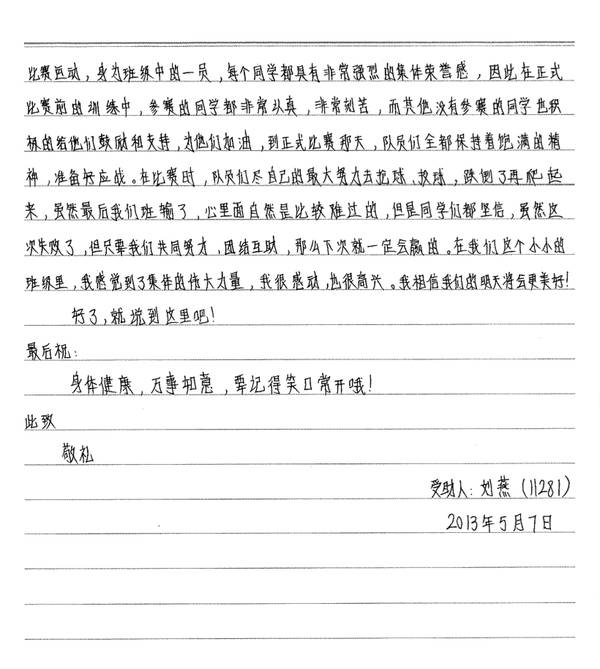 比赛运动，身为班级中的一员，每个同学都具有非常强烈的集体荣誉感，因此在正式
比赛前的训练中，参赛的同学都非常认真，非常刻苦，而其他没有参赛的同学也积
极的给他们鼓励和支持，为他们加油，到正式比赛那天，队员们全都保持着饱满的精
神，准备好应战。在比赛时，队员们尽自己的最大努力去抢球、救球，跌倒了再爬起
来，虽然最后我们班输了，心里面自然是比较难过的，但是同学们都坚信，虽然这
次失败了，但只要我们共同努力，团结互助，那么下次就一定会赢的。在我们这个小小的
班级里，我感觉到了集体的伟大力量，我很感动，也很高兴。我相信我们的明天将会更美好！
好了，就说到这里吧！
最后祝：
身体健康，万事如意，要记得笑口常开哦！
此致
敬礼
受助人：刘燕（11281）
2013年5月7日